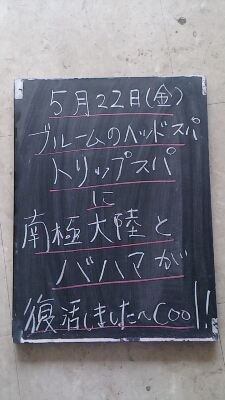 5月22日(金)
ブルームのヘッドスパ
トリップスパ
に
南極大陸と
バハマが
復活しました～Cool!!